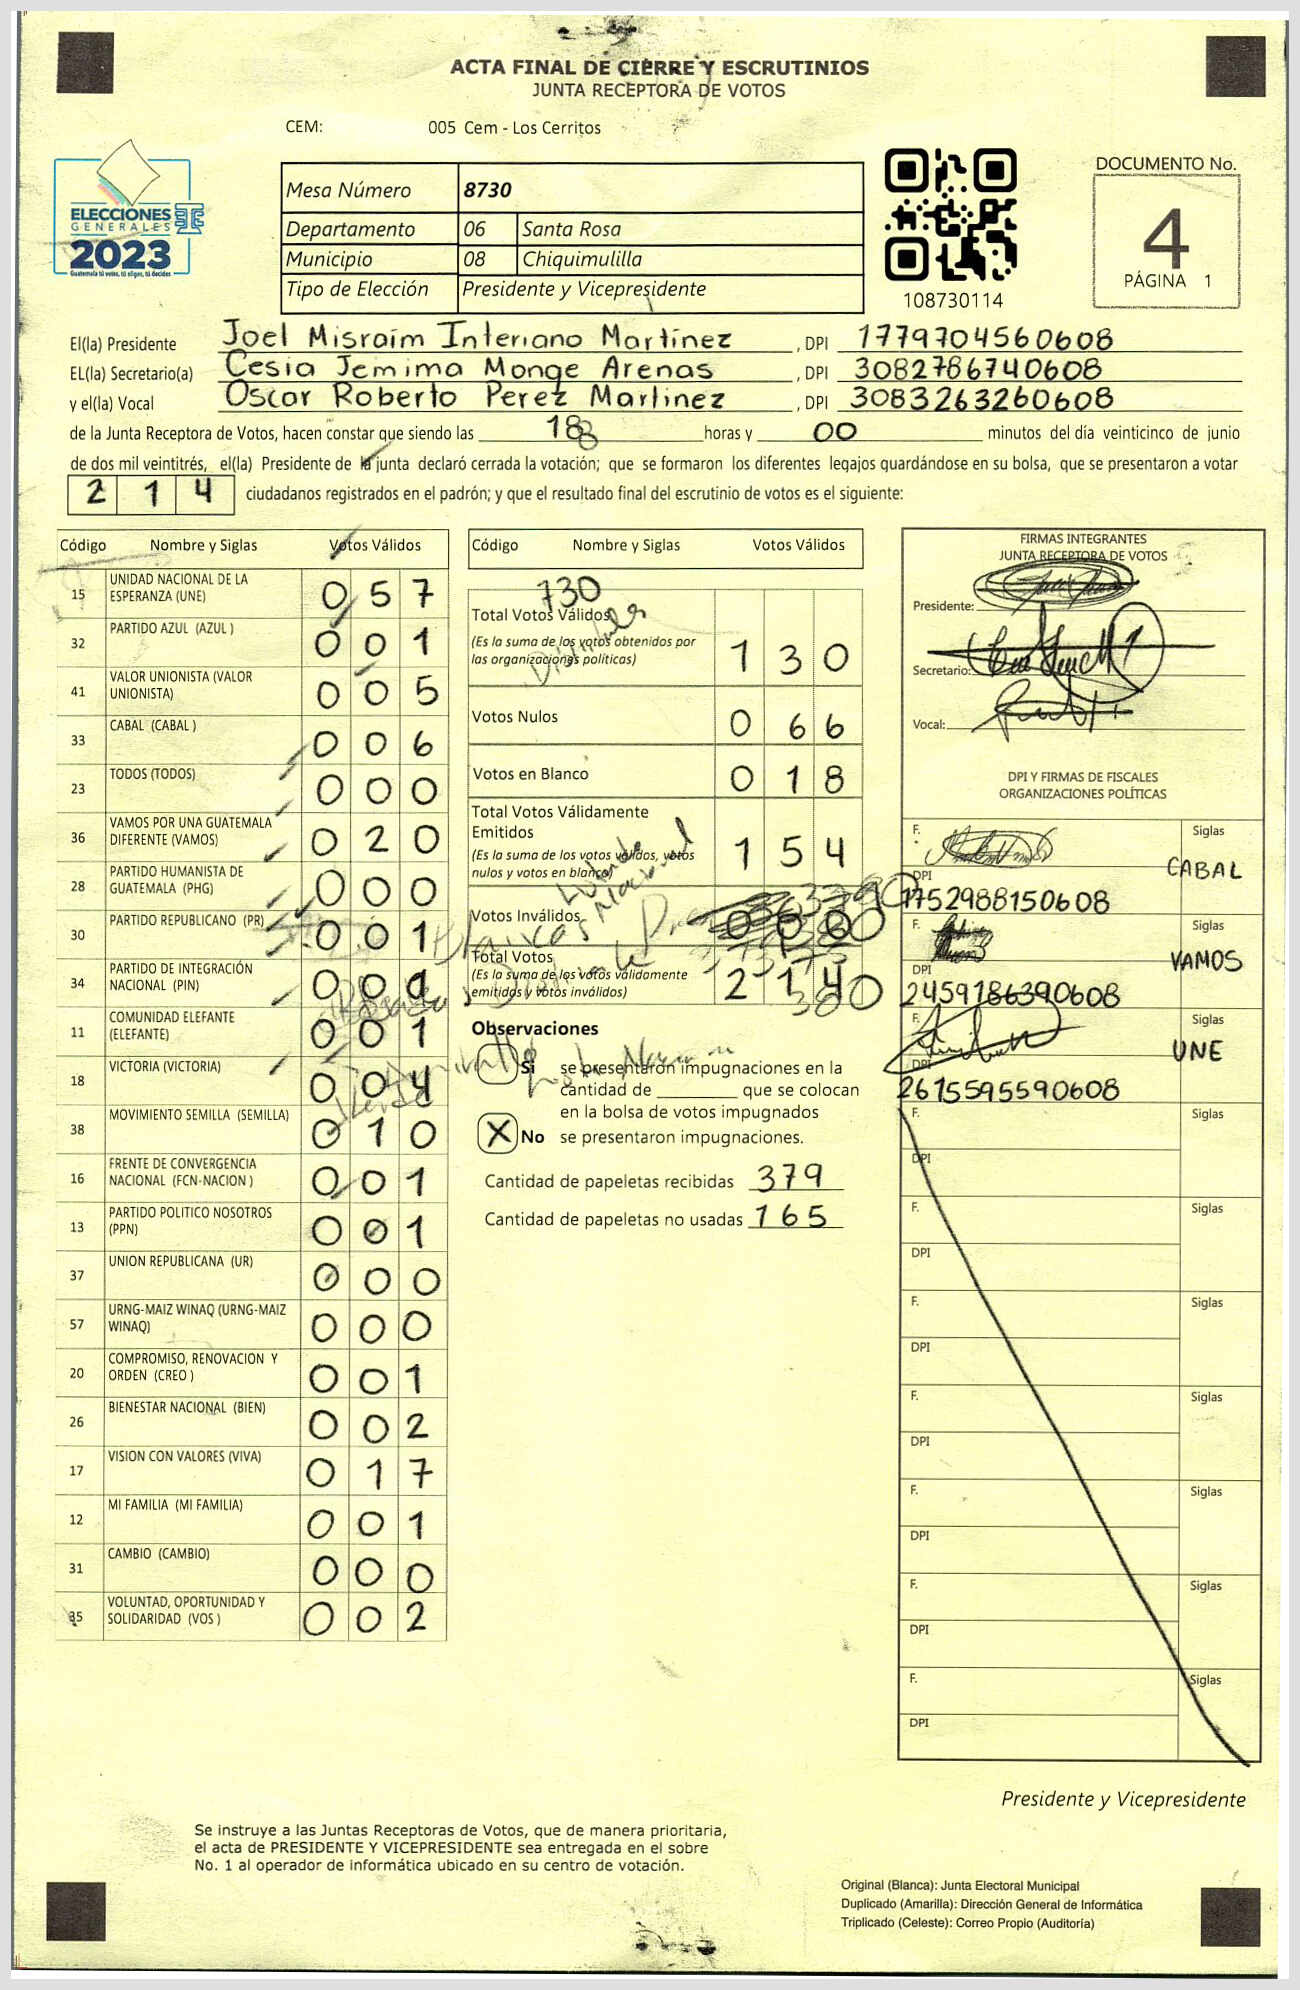 ACTA FINAL DE CIERRE Y ESCRUTINIOS
JUNTA RECEPTORA DE VOTOS
CEM: 005 Cem - Los Cerritos
ELECCIONES
GENERALES
2023
Guatemala tú votas, tú eliges, tú decides
Mesa Número 8730
Departamento 06 Santa Rosa
Municipio 08 Chiquimulilla
Tipo de Elección Presidente y Vicepresidente
108730114
DOCUMENTO No.
4
PÁGINA 1
El(la) Presidente Joel Misraím Interiano Martínez , DPI 1779704560608
EL(la) Secretario(a) Cesia Jemima Monge Arenas , DPI 3082786740608
y el(la) Vocal Oscar Roberto Perez Martinez , DPI 3083263260608
de la Junta Receptora de Votos, hacen constar que siendo las 18 horas y 00 minutos del día veinticinco de junio
de dos mil veintitrés, el(la) Presidente de la junta declaró cerrada la votación; que se formaron los diferentes legajos guardándose en su bolsa, que se presentaron a votar
214 ciudadanos registrados en el padrón; y que el resultado final del escrutinio de votos es el siguiente:
Código Nombre y Siglas Votos Válidos
15 UNIDAD NACIONAL DE LA ESPERANZA (UNE) 057
32 PARTIDO AZUL (AZUL ) 001
41 VALOR UNIONISTA (VALOR UNIONISTA) 005
33 CABAL (CABAL ) 006
23 TODOS (TODOS) 000
36 VAMOS POR UNA GUATEMALA DIFERENTE (VAMOS) 020
28 PARTIDO HUMANISTA DE GUATEMALA (PHG) 000
30 PARTIDO REPUBLICANO (PR) 001
34 PARTIDO DE INTEGRACIÓN NACIONAL (PIN) 00
11 COMUNIDAD ELEFANTE (ELEFANTE) 001
18 VICTORIA (VICTORIA) 004
38 MOVIMIENTO SEMILLA (SEMILLA) 010
16 FRENTE DE CONVERGENCIA NACIONAL (FCN-NACION ) 001
13 PARTIDO POLITICO NOSOTROS (PPN) 001
37 UNION REPUBLICANA (UR) 000
57 URNG-MAIZ WINAQ (URNG-MAIZ WINAQ) 000
20 COMPROMISO, RENOVACION Y ORDEN (CREO ) 001
26 BIENESTAR NACIONAL (BIEN) 002
17 VISION CON VALORES (VIVA) 017
12 MI FAMILIA (MI FAMILIA) 001
31 CAMBIO (CAMBIO) 000
35 VOLUNTAD, OPORTUNIDAD Y SOLIDARIDAD (VOS ) 002
Código Nombre y Siglas Votos Válidos
730
Total Votos Válidos
(Es la suma de los votos obtenidos por
las organizaciones políticas) 130
Votos Nulos 066
Votos en Blanco 018
Total Votos Válidamente
Emitidos
(Es la suma de los votos válidos, votos
nulos y votos en blanco) 154
Votos Inválidos 000
Total Votos
(Es la suma de los votos válidamente
emitidos y votos inválidos) 214
Observaciones
Si se presentaron impugnaciones en la
cantidad de ________ que se colocan
en la bolsa de votos impugnados
X No se presentaron impugnaciones.
Cantidad de papeletas recibidas 379
Cantidad de papeletas no usadas 165
FIRMAS INTEGRANTES
JUNTA RECEPTORA DE VOTOS
Presidente:
Secretario:
Vocal:
DPI Y FIRMAS DE FISCALES
ORGANIZACIONES POLÍTICAS
F. Siglas
CABAL
DPI
1752988150608
F. Siglas
VAMOS
DPI
2459186390608
F. Siglas
UNE
DPI
2615595590608
F. Siglas
DPI
F. Siglas
DPI
F. Siglas
DPI
F. Siglas
DPI
F. Siglas
DPI
F. Siglas
DPI
F. Siglas
DPI
Presidente y Vicepresidente
Se instruye a las Juntas Receptoras de Votos, que de manera prioritaria,
el acta de PRESIDENTE Y VICEPRESIDENTE sea entregada en el sobre
No. 1 al operador de informática ubicado en su centro de votación.
Original (Blanca): Junta Electoral Municipal
Duplicado (Amarilla): Dirección General de Informática
Triplicado (Celeste): Correo Propio (Auditoría)